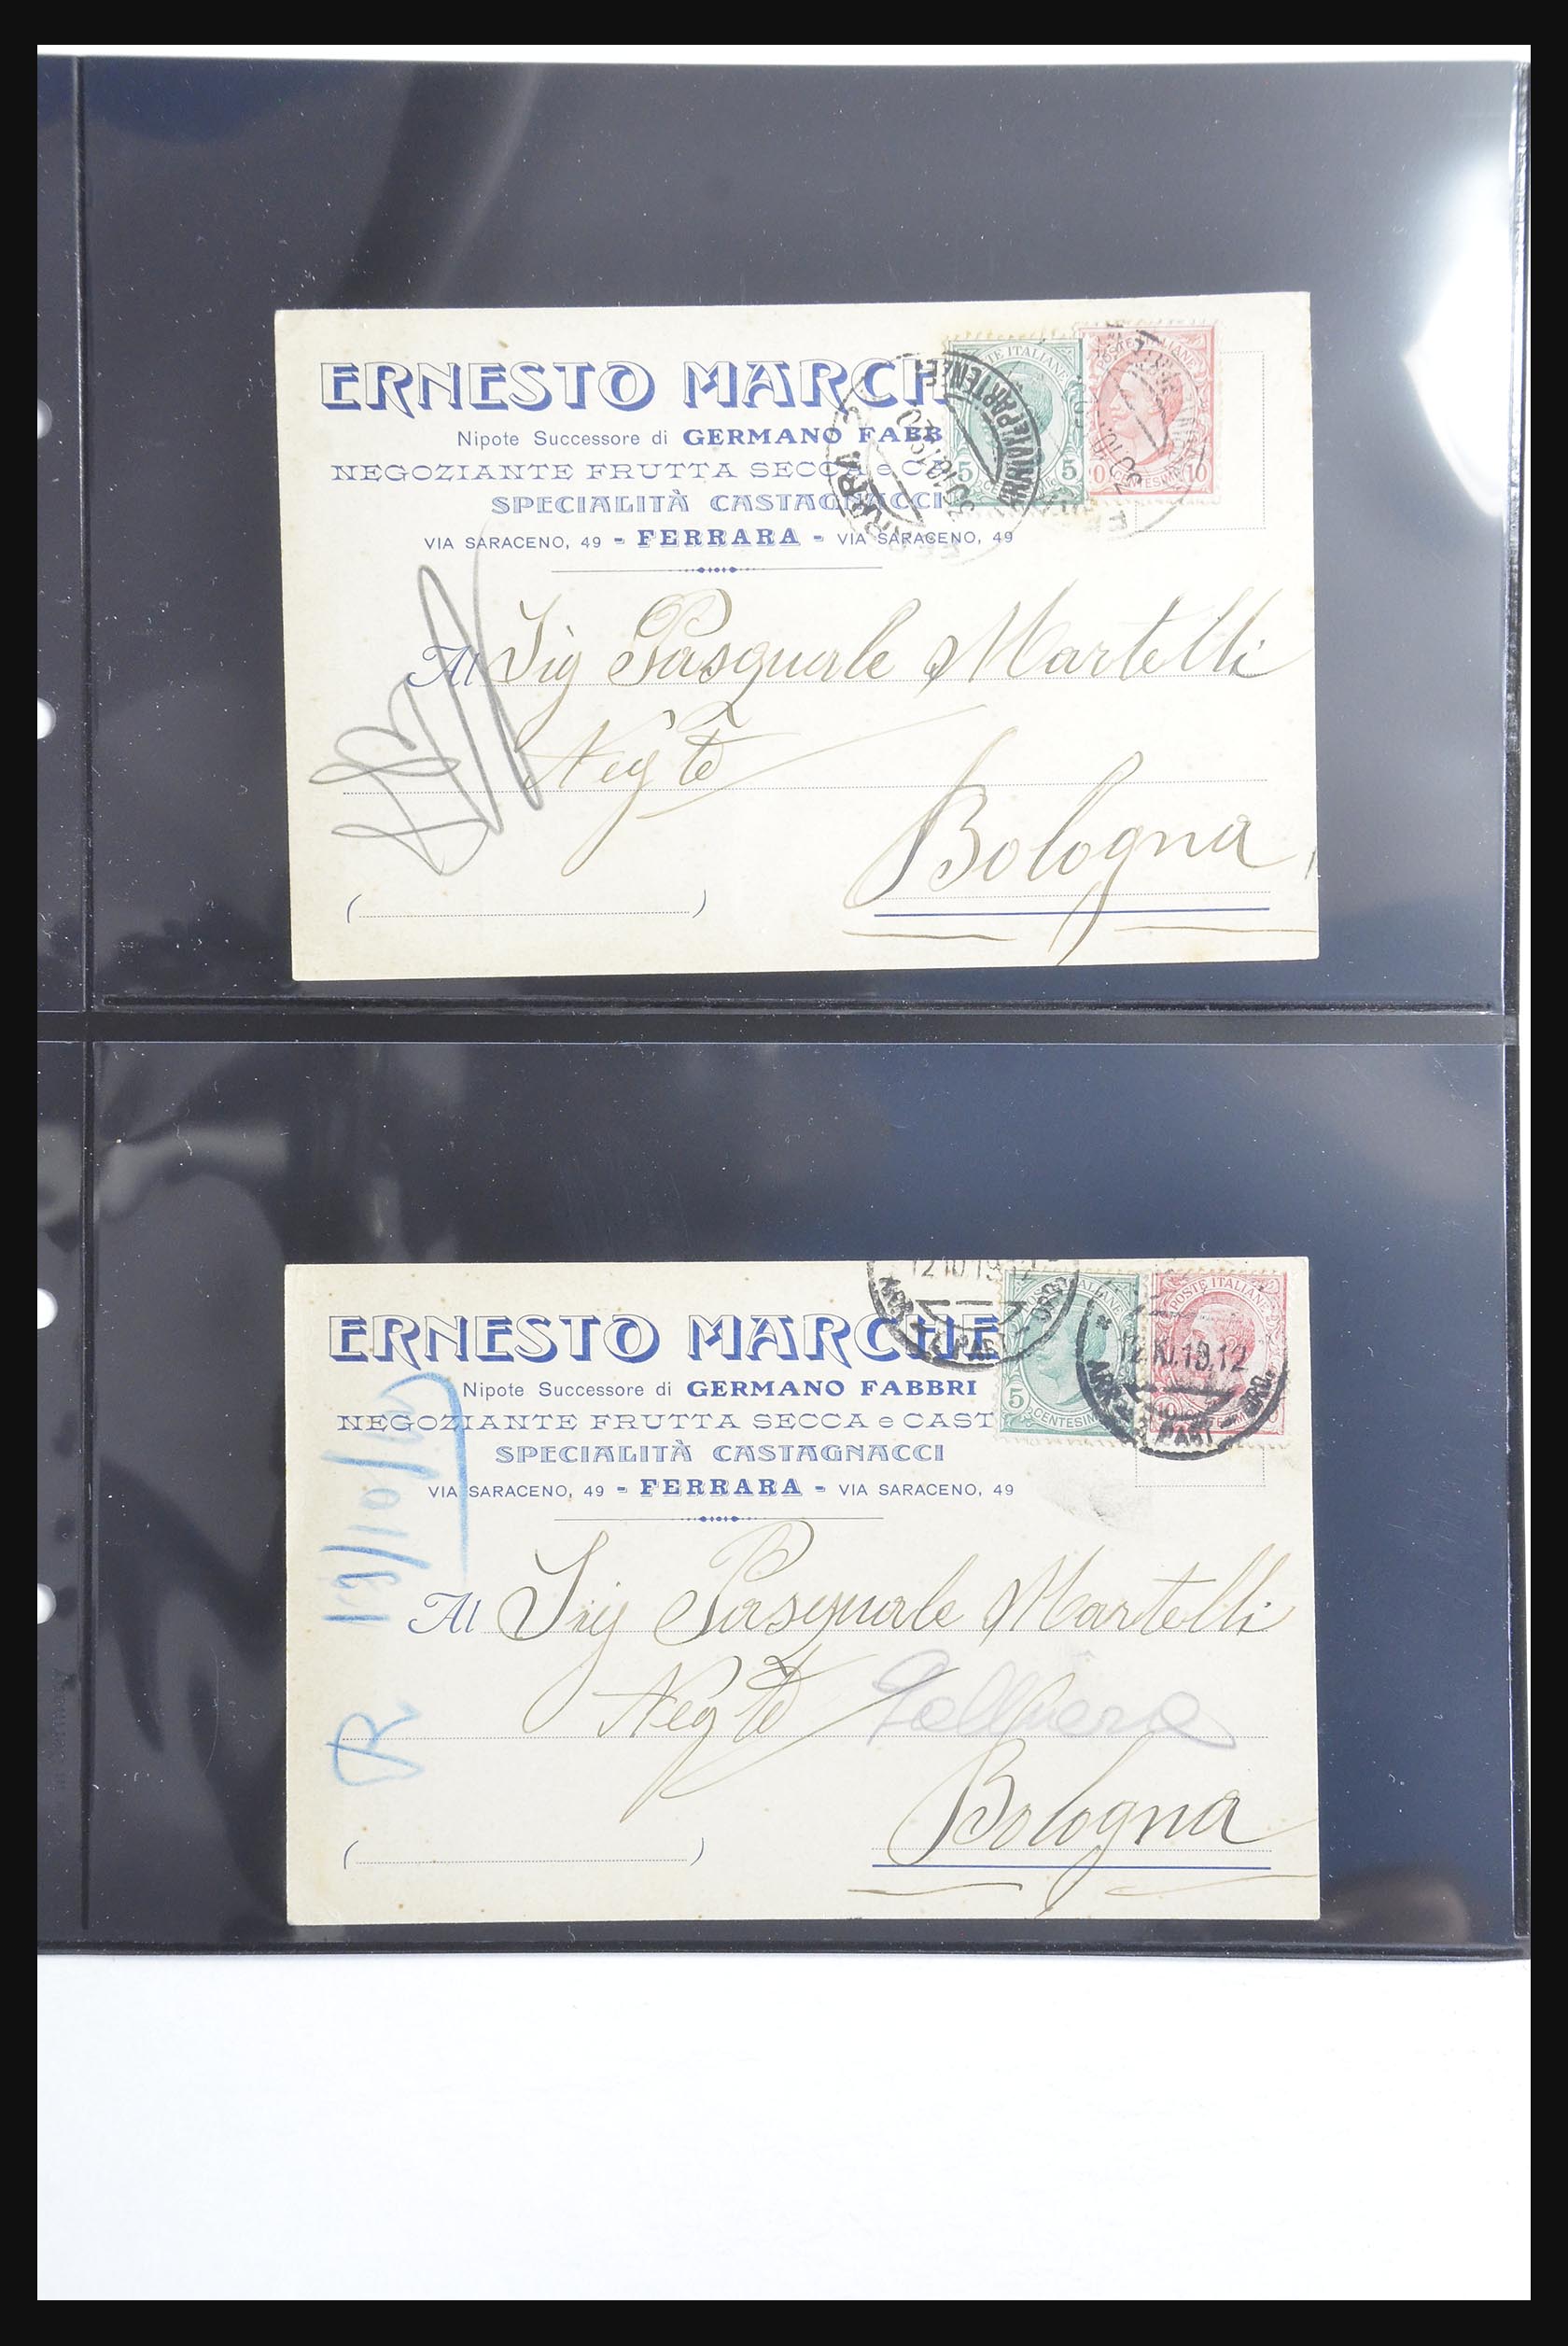 ERNESTO MARCH
Nipote Successore di GERMANO FABB
NEGOZIANTE FRUTTA SECCA e CA
SPECIALITÀ CASTAGNACCI
VIA SARACENO, 49 - FERRARA - VIA SARACENO, 49
POSTE ITALIANE
5 5
CENTESIMI
10
FERRARA
Al Sig Pasquale Martelli
Negte
Bologna
( )
12.10.19.12
ERNESTO MARCHE
Nipote Successore di GERMANO FABBRI
NEGOZIANTE FRUTTA SECCA e CAST
SPECIALITÀ CASTAGNACCI
VIA SARACENO, 49 - FERRARA - VIA SARACENO, 49
5 CENTESIMI
POSTE ITALIANE
12.XI.19.12
R 13/10/12
Al Sig Pasquale Martelli
Negte Galliera
Bologna
( )